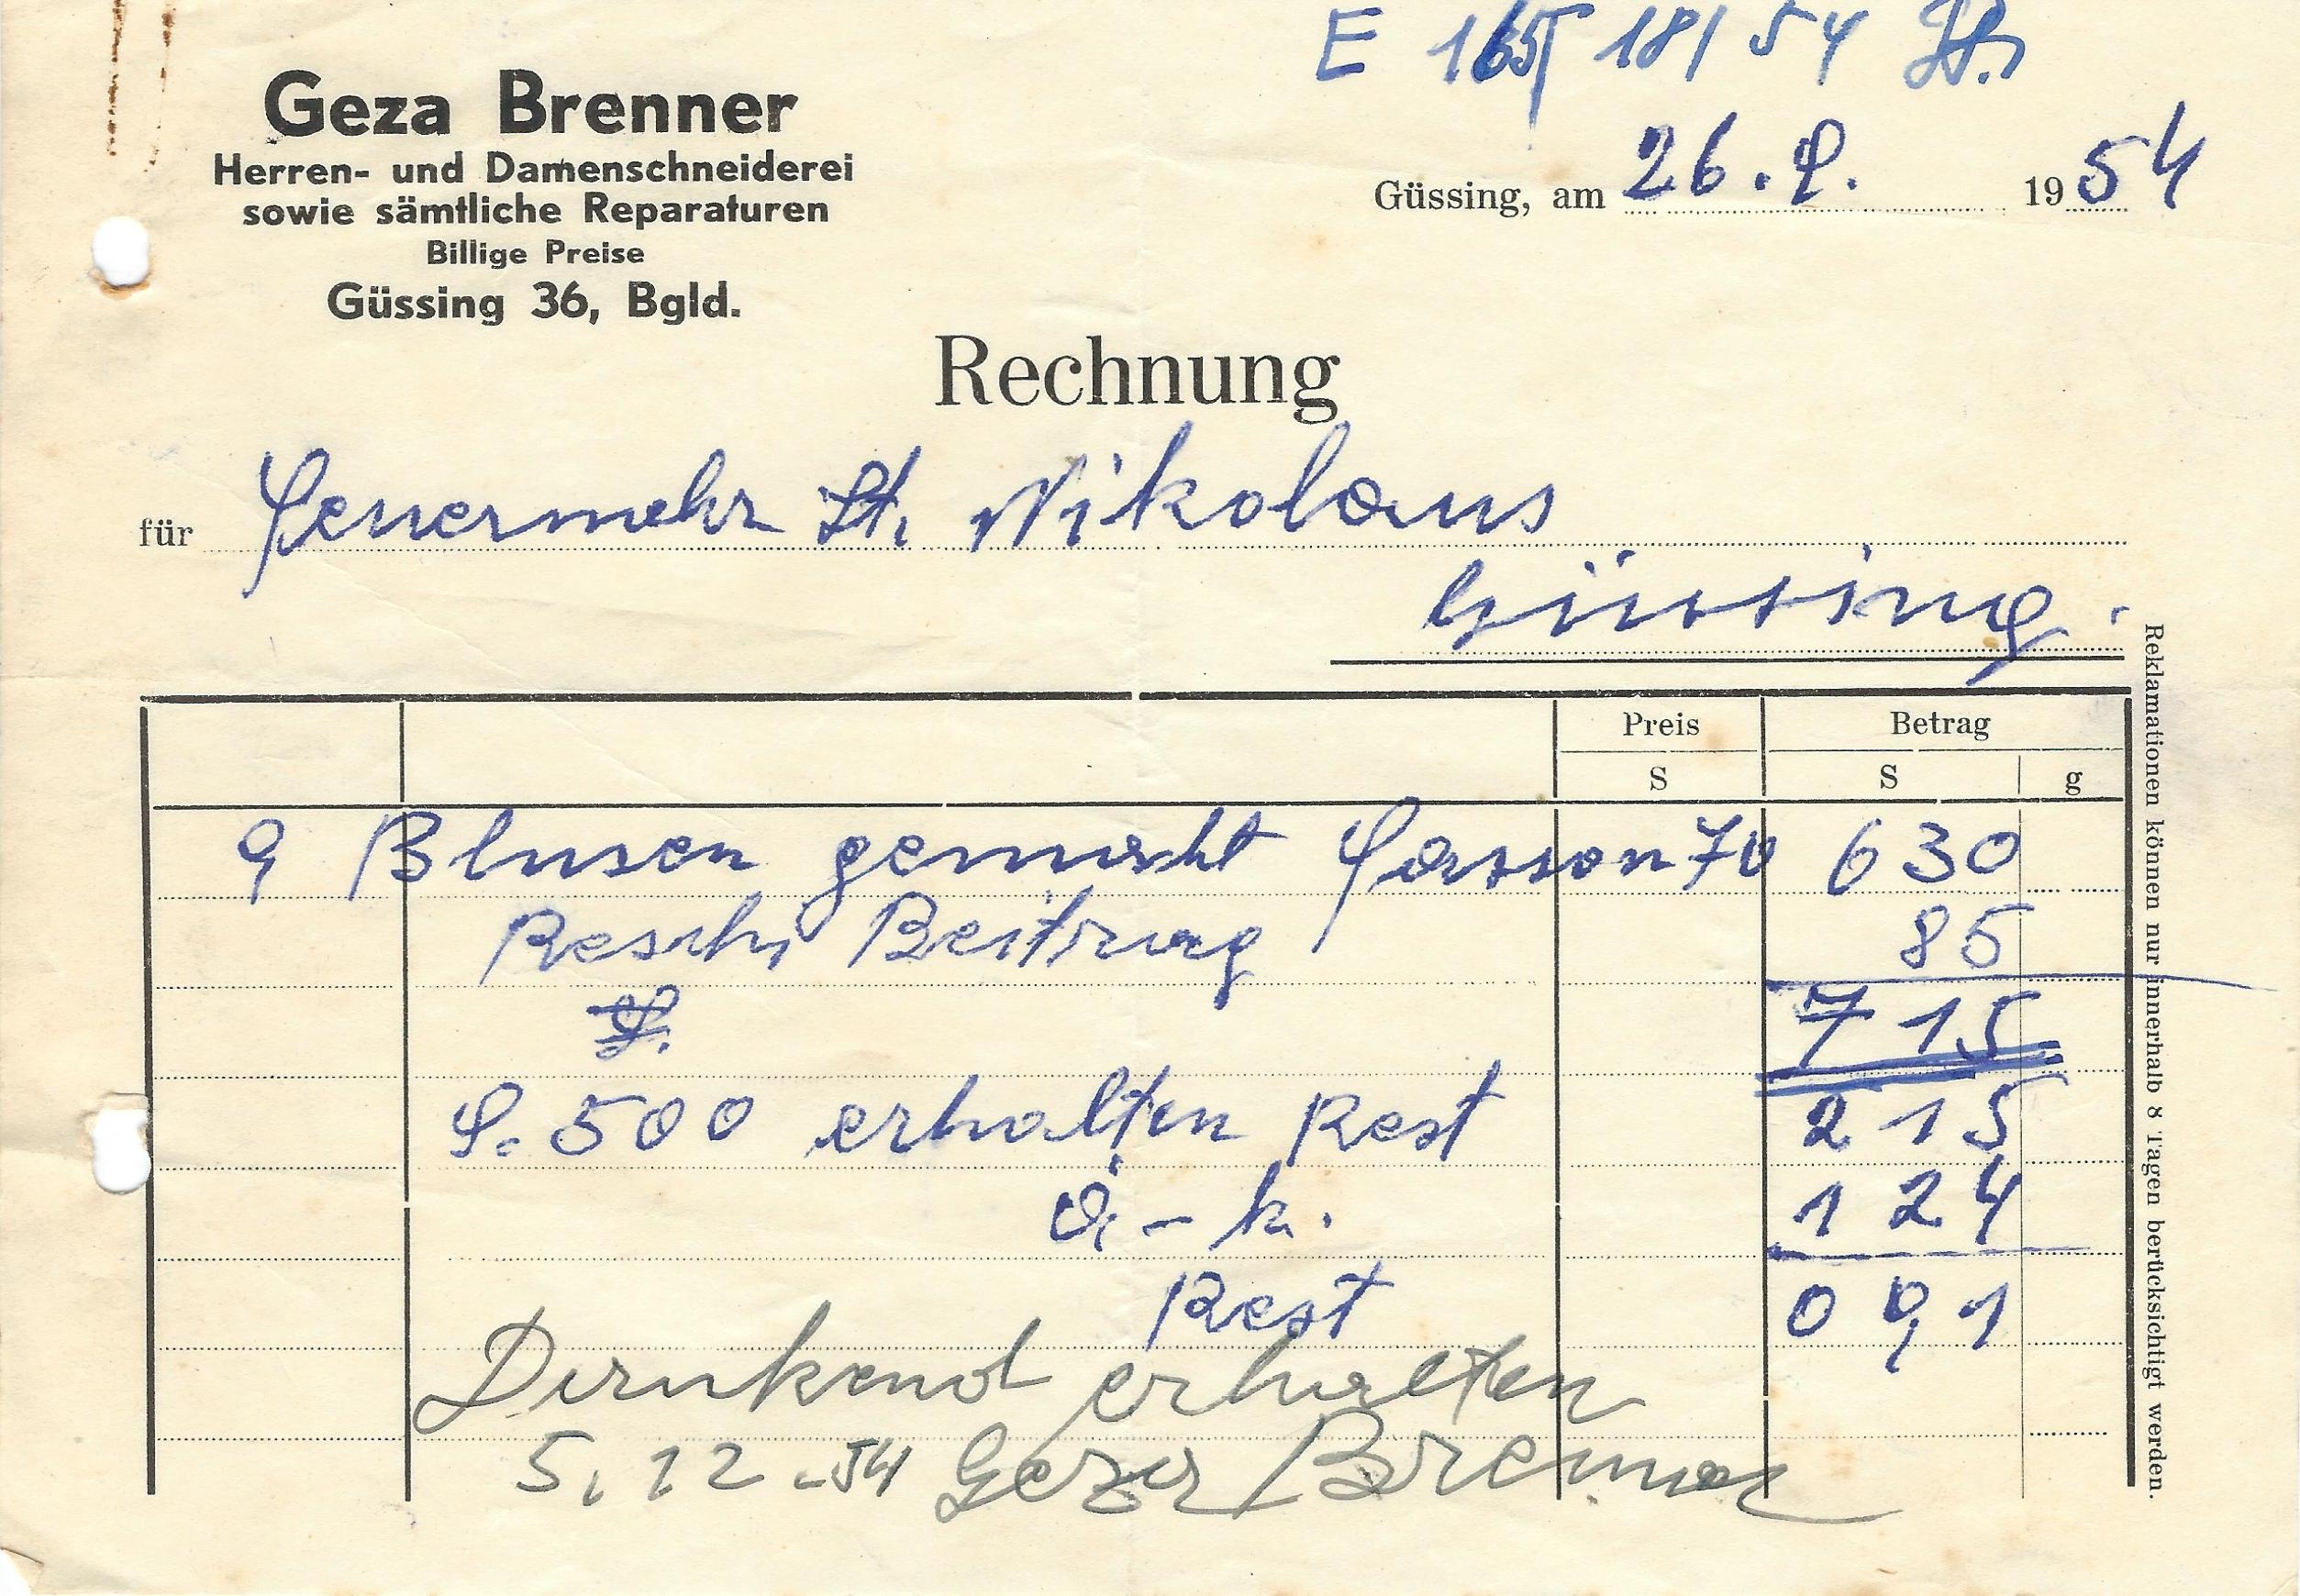 E 165/18/54
Geza Brenner
Herren- und Damenschneiderei
sowie sämtliche Reparaturen
Billige Preise
Güssing 36, Bgld.
Güssing, am 26. 9. 1954
Rechnung
für Feuerwehr St. Nikolaus
Güssing.
Preis Betrag
S S g
9 Blusen gemacht Fasson 70 630
Resch, Beitrag 85
715
S. 500 erhalten Rest 215
124
Rest 091
Dankend erhalten
5. 12. 54 Geza Brenner
Reklamationen können nur innerhalb 8 Tagen berücksichtigt werden.